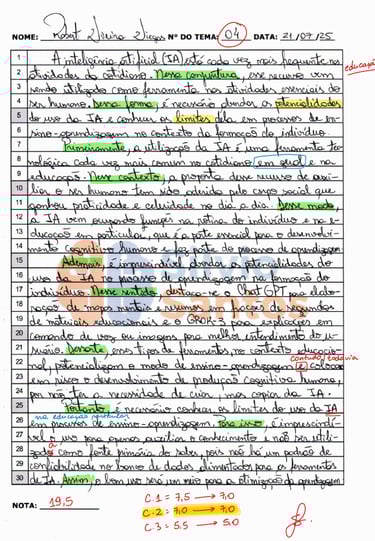 NOME: Robert Vieira Viegas Nº DO TEMA: 04 DATA: 21/07/25
1 A inteligência artificial (IA) está cada vez mais frequente nas
educação
2 atividades do cotidiano. Nessa conjuntura, esse recurso vem
3 sendo utilizado como ferramenta nas atividades essenciais do
4 ser humano. Dessa forma, é necessário abordar as potencialidades
5 do uso da IA e conhecer os limites dela em processos de en-
6 sino-aprendizagem no contexto da formação do indivíduo.
7 Primeiramente, a utilização da IA é uma ferramenta te-
8 nológica cada vez mais comum no cotidiano em geral e na
9 educação. Nesse contexto, a proposta desse recurso de auxi-
10 liar o ser humano tem sido aderida pelo corpo social que
11 ganhou praticidade e celeridade no dia a dia. Desse modo,
12 a IA vem ocupando funções na rotina do indivíduo e na e-
13 ducação em particular, que é a parte essencial para o desenvolvi-
14 mento cognitivo humano e faz parte do processo de aprendizagem.
15 Ademais, é imprescindível abordar as potencialidades do
16 uso da IA no processo de aprendizagem na formação do
17 indivíduo. Nesse sentido, destaca-se o Chat GPT para elabo-
18 rações de mapas mentais e resumos em frações de segundos
19 de materiais educacionais e o GROK-3 para explicações em
20 comando de voz ou imagens para melhor entendimento do u-
21 suário. Destarte, esses tipos de ferramentas, no contexto educacio-
contudo, todavia
22 nal, potencializam o modo de ensino-aprendizagem e colocam
23 em risco o desenvolvimento de produção cognitiva humana,
24 por não ter a necessidade de criar, mas copiar da IA.
25 Portanto, é necessário conhecer os limites do uso da IA
na educação, portanto
26 em processos de ensino-aprendizagem. Para isso, é imprescindí-
27 vel o uso para apenas auxiliar o conhecimento e não ser utili-
28 zada como fonte primária do saber, pois não há um padrão de
29 confiabilidade no banco de dados alimentados para as ferramentas
30 de IA. Assim, o bom uso será um meio para a otimização da aprendizagem
NOTA: 19,5
C.1 = 7,5 → 7,0
C.2 = 7,0 → 7,0
C.3 = 5,5 → 5,0